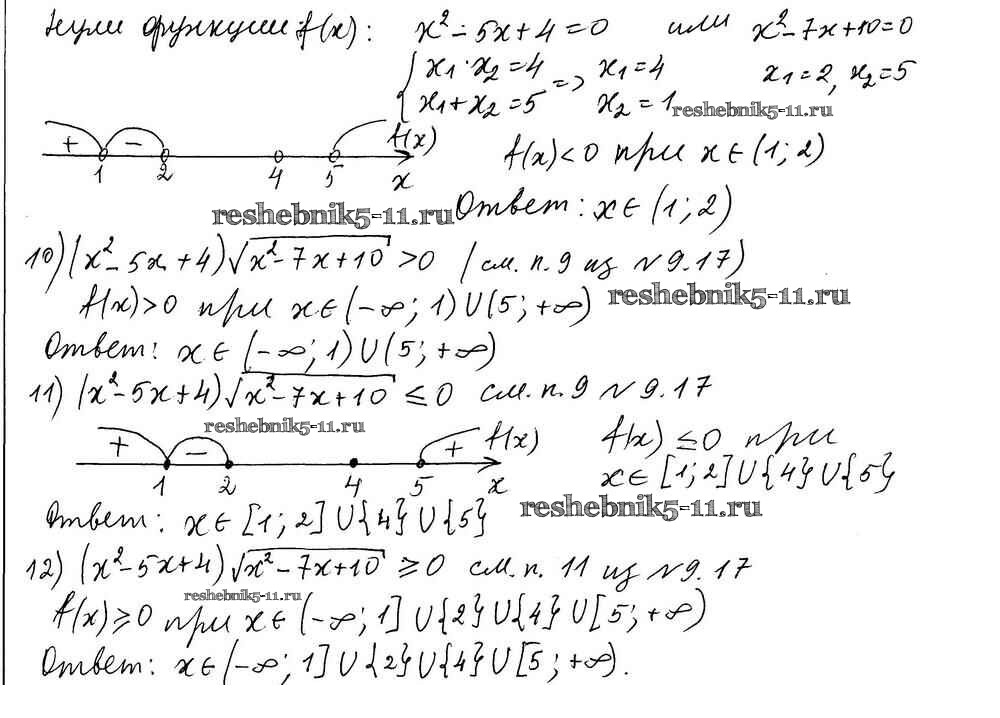 Нули функции f(x): x² - 5x + 4 = 0 или x² - 7x + 10 = 0
{ x₁ · x₂ = 4 => x₁ = 4 x₁ = 2, x₂ = 5
x₁ + x₂ = 5 x₂ = 1 reshebnik5-11.ru
+ - f(x)
1 2 4 5 x
f(x) < 0 при x ∈ (1; 2)
reshebnik5-11.ru Ответ: x ∈ (1; 2)
10) (x² - 5x + 4) √(x² - 7x + 10) > 0 (см. п. 9 из №9.17)
f(x) > 0 при x ∈ (-∞; 1) ∪ (5; +∞) reshebnik5-11.ru
Ответ: x ∈ (-∞; 1) ∪ (5; +∞)
11) (x² - 5x + 4) √(x² - 7x + 10) ≤ 0 см. п. 9 №9.17
reshebnik5-11.ru
+ - + f(x)
1 2 4 5 x
f(x) ≤ 0 при
x ∈ [1; 2] ∪ {4} ∪ {5}
reshebnik5-11.ru
Ответ: x ∈ [1; 2] ∪ {4} ∪ {5}
12) (x² - 5x + 4) √(x² - 7x + 10) ≥ 0 см. п. 11 из №9.17
reshebnik5-11.ru
f(x) ≥ 0 при x ∈ (-∞; 1] ∪ {2} ∪ {4} ∪ [5; +∞)
Ответ: x ∈ (-∞; 1] ∪ {2} ∪ {4} ∪ [5; +∞).